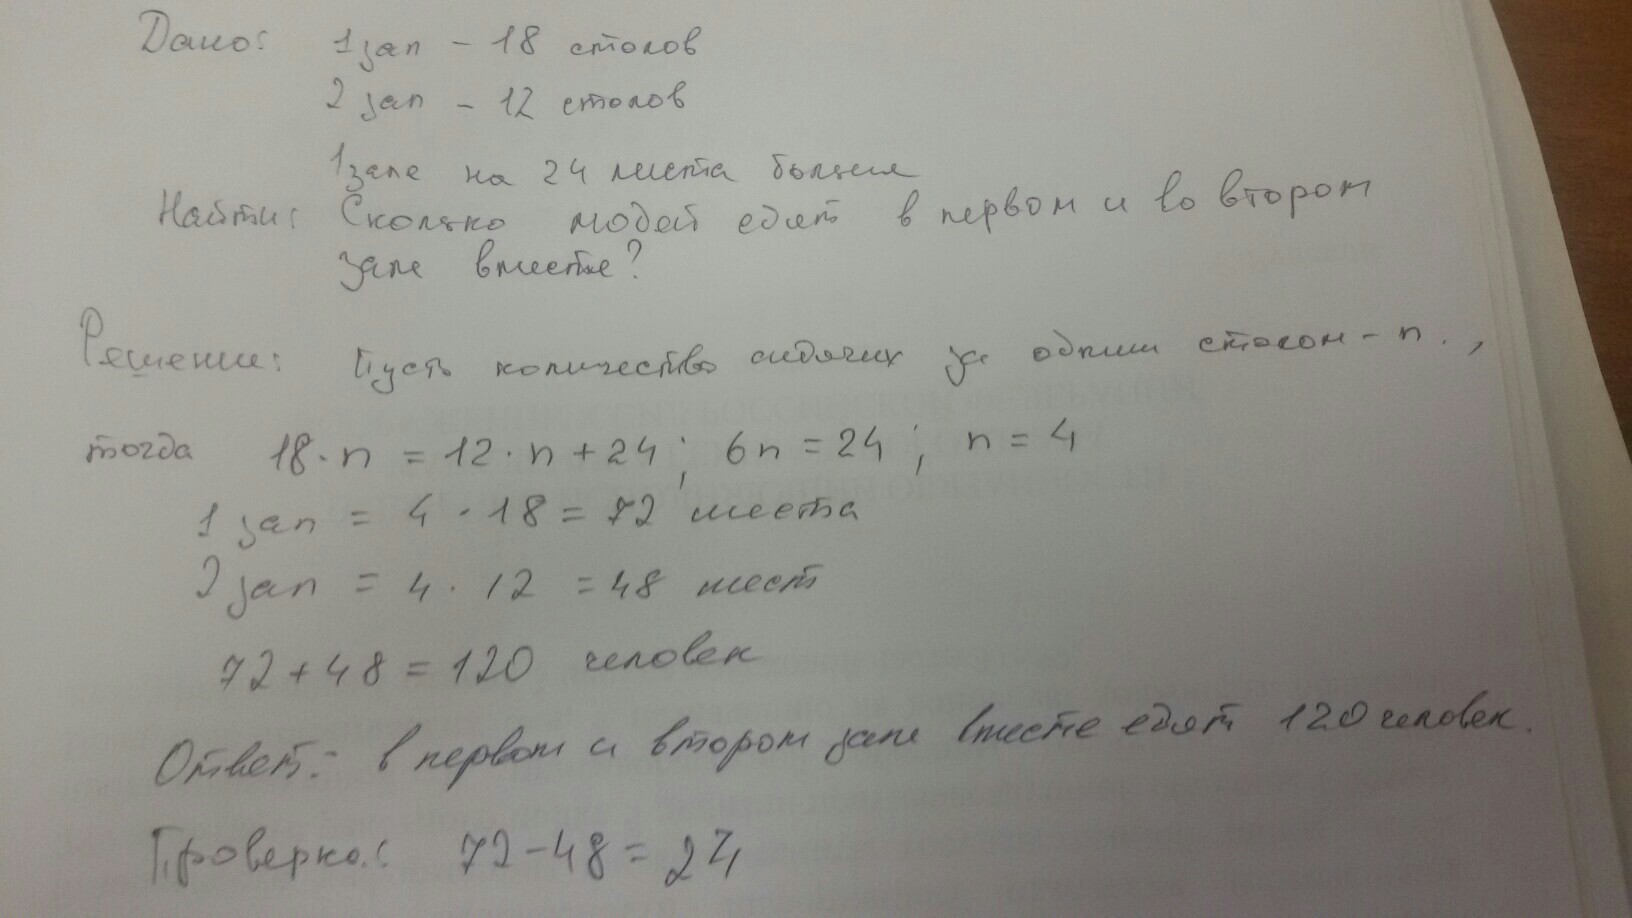 Дано: 1 зал - 18 столов
2 зал - 12 столов
1 зале на 24 места больше
Найти: Сколько людей едят в первом и во втором
зале вместе?
Решение: Пусть количество сидячих за одним столом - n.,
тогда 18·n = 12·n + 24; 6n = 24; n = 4
1 зал = 4 · 18 = 72 места
2 зал = 4 · 12 = 48 мест
72 + 48 = 120 человек
Ответ: в первом и втором зале вместе едят 120 человек.
Проверка: 72 - 48 = 24